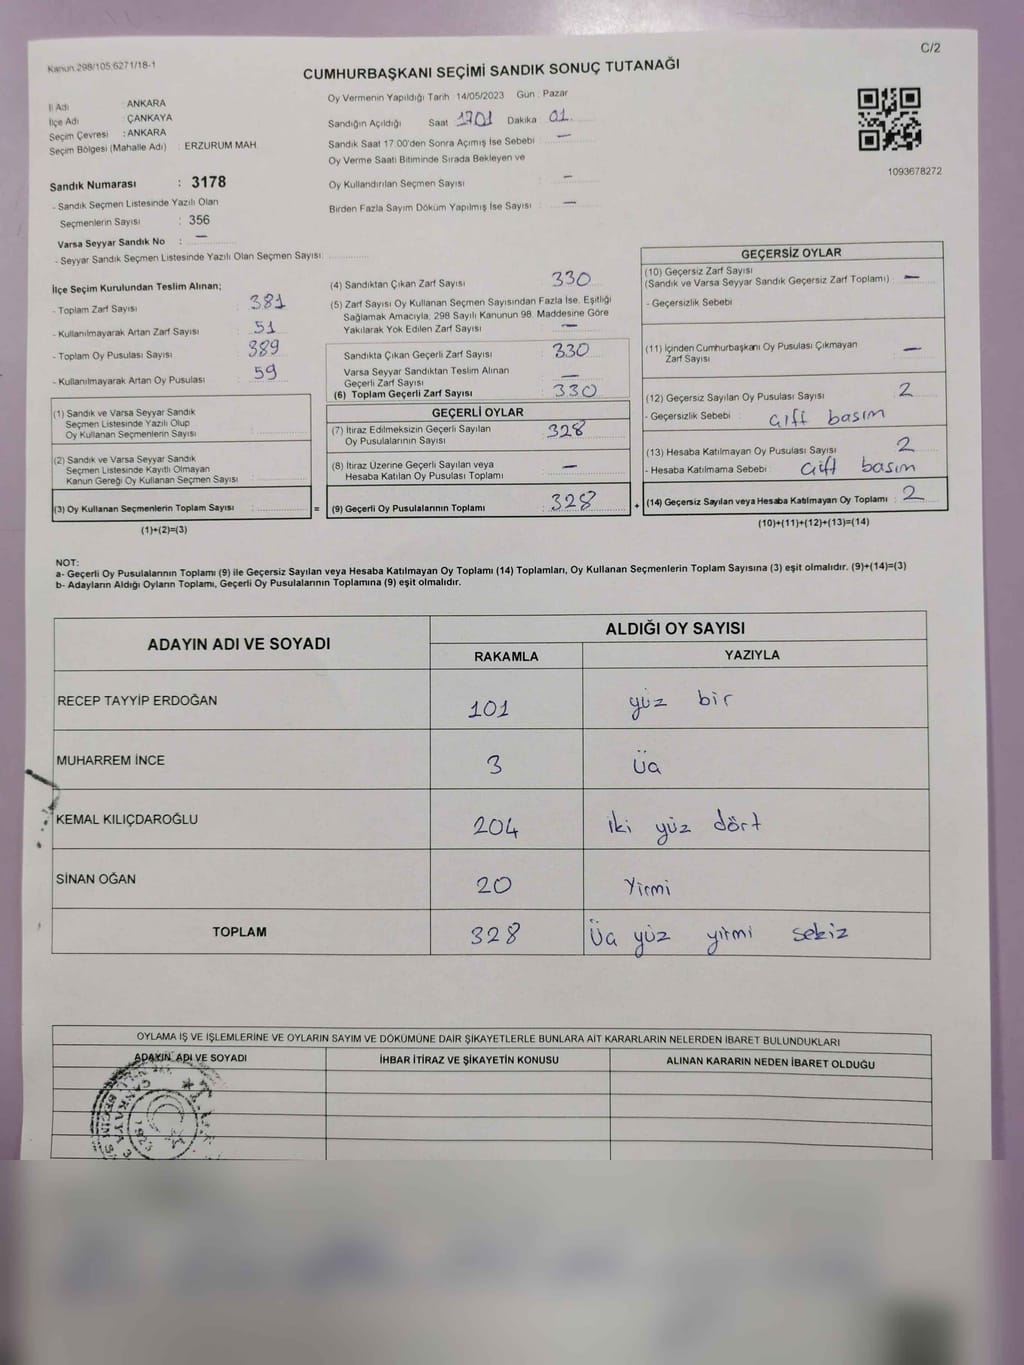 C/2
Kanun 298/105 6271/18-1
CUMHURBAŞKANI SEÇİMİ SANDIK SONUÇ TUTANAĞI
İl Adı : ANKARA
İlçe Adı : ÇANKAYA
Seçim Çevresi : ANKARA
Seçim Bölgesi (Mahalle Adı) : ERZURUM MAH.
Sandık Numarası : 3178
- Sandık Seçmen Listesinde Yazılı Olan
Seçmenlerin Sayısı : 356
Varsa Seyyar Sandık No : —
- Seyyar Sandık Seçmen Listesinde Yazılı Olan Seçmen Sayısı:
Oy Vermenin Yapıldığı Tarih : 14/05/2023 Gün : Pazar
Sandığın Açıldığı Saat 1701 Dakika : 01.
Sandık Saat 17.00'den Sonra Açımış İse Sebebi : —
Oy Verme Saati Bitiminde Sırada Bekleyen ve
Oy Kullandırılan Seçmen Sayısı : —
Birden Fazla Sayım Döküm Yapılmış İse Sayısı : —
1093678272
İlçe Seçim Kurulundan Teslim Alınan;
- Toplam Zarf Sayısı : 381
- Kullanılmayarak Artan Zarf Sayısı : 51
- Toplam Oy Pusulası Sayısı : 389
- Kullanılmayarak Artan Oy Pusulası : 59
(1) Sandık ve Varsa Seyyar Sandık
Seçmen Listesinde Yazılı Olup
Oy Kullanan Seçmenlerin Sayısı :
(2) Sandık ve Varsa Seyyar Sandık
Seçmen Listesinde Kayıtlı Olmayan
Kanun Gereği Oy Kullanan Seçmen Sayısı :
(3) Oy Kullanan Seçmenlerin Toplam Sayısı : =
(1)+(2)=(3)
(4) Sandıktan Çıkan Zarf Sayısı : 330
(5) Zarf Sayısı Oy Kullanan Seçmen Sayısından Fazla İse, Eşitliği
Sağlamak Amacıyla, 298 Sayılı Kanunun 98. Maddesine Göre
Yakılarak Yok Edilen Zarf Sayısı : —
Sandıkta Çıkan Geçerli Zarf Sayısı : 330
Varsa Seyyar Sandıktan Teslim Alınan
Geçerli Zarf Sayısı : —
(6) Toplam Geçerli Zarf Sayısı : 330
GEÇERLİ OYLAR
(7) İtiraz Edilmeksizin Geçerli Sayılan
Oy Pusulalarının Sayısı : 328
(8) İtiraz Üzerine Geçerli Sayılan veya
Hesaba Katılan Oy Pusulası Toplamı : —
(9) Geçerli Oy Pusulalarının Toplamı : 328 +
GEÇERSİZ OYLAR
(10) Geçersiz Zarf Sayısı
(Sandık ve Varsa Seyyar Sandık Geçersiz Zarf Toplamı) : —
- Geçersizlik Sebebi
(11) İçinden Cumhurbaşkanı Oy Pusulası Çıkmayan
Zarf Sayısı : —
(12) Geçersiz Sayılan Oy Pusulası Sayısı : 2
- Geçersizlik Sebebi : çift basım
(13) Hesaba Katılmayan Oy Pusulası Sayısı : 2
- Hesaba Katılmama Sebebi : çift basım
(14) Geçersiz Sayılan veya Hesaba Katılmayan Oy Toplamı : 2
(10)+(11)+(12)+(13)=(14)
NOT:
a- Geçerli Oy Pusulalarının Toplamı (9) ile Geçersiz Sayılan veya Hesaba Katılmayan Oy Toplamı (14) Toplamları, Oy Kullanan Seçmenlerin Toplam Sayısına (3) eşit olmalıdır. (9)+(14)=(3)
b- Adayların Aldığı Oyların Toplamı, Geçerli Oy Pusulalarının Toplamına (9) eşit olmalıdır.
ADAYIN ADI VE SOYADI ALDIĞI OY SAYISI
RAKAMLA YAZIYLA
RECEP TAYYİP ERDOĞAN 101 yüz bir
MUHARREM İNCE 3 üç
KEMAL KILIÇDAROĞLU 204 iki yüz dört
SİNAN OĞAN 20 Yirmi
TOPLAM 328 Üç yüz yirmi sekiz
OYLAMA İŞ VE İŞLEMLERİNE VE OYLARIN SAYIM VE DÖKÜMÜNE DAİR ŞİKAYETLERLE BUNLARA AİT KARARLARIN NELERDEN İBARET BULUNDUKLARI
ADAYIN ADI VE SOYADI İHBAR İTİRAZ VE ŞİKAYETİN KONUSU ALINAN KARARIN NEDEN İBARET OLDUĞU